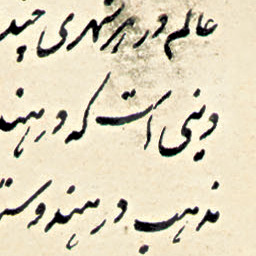 عالم در هر شهری چند
دینی است که در هند
مذهب در هندوست